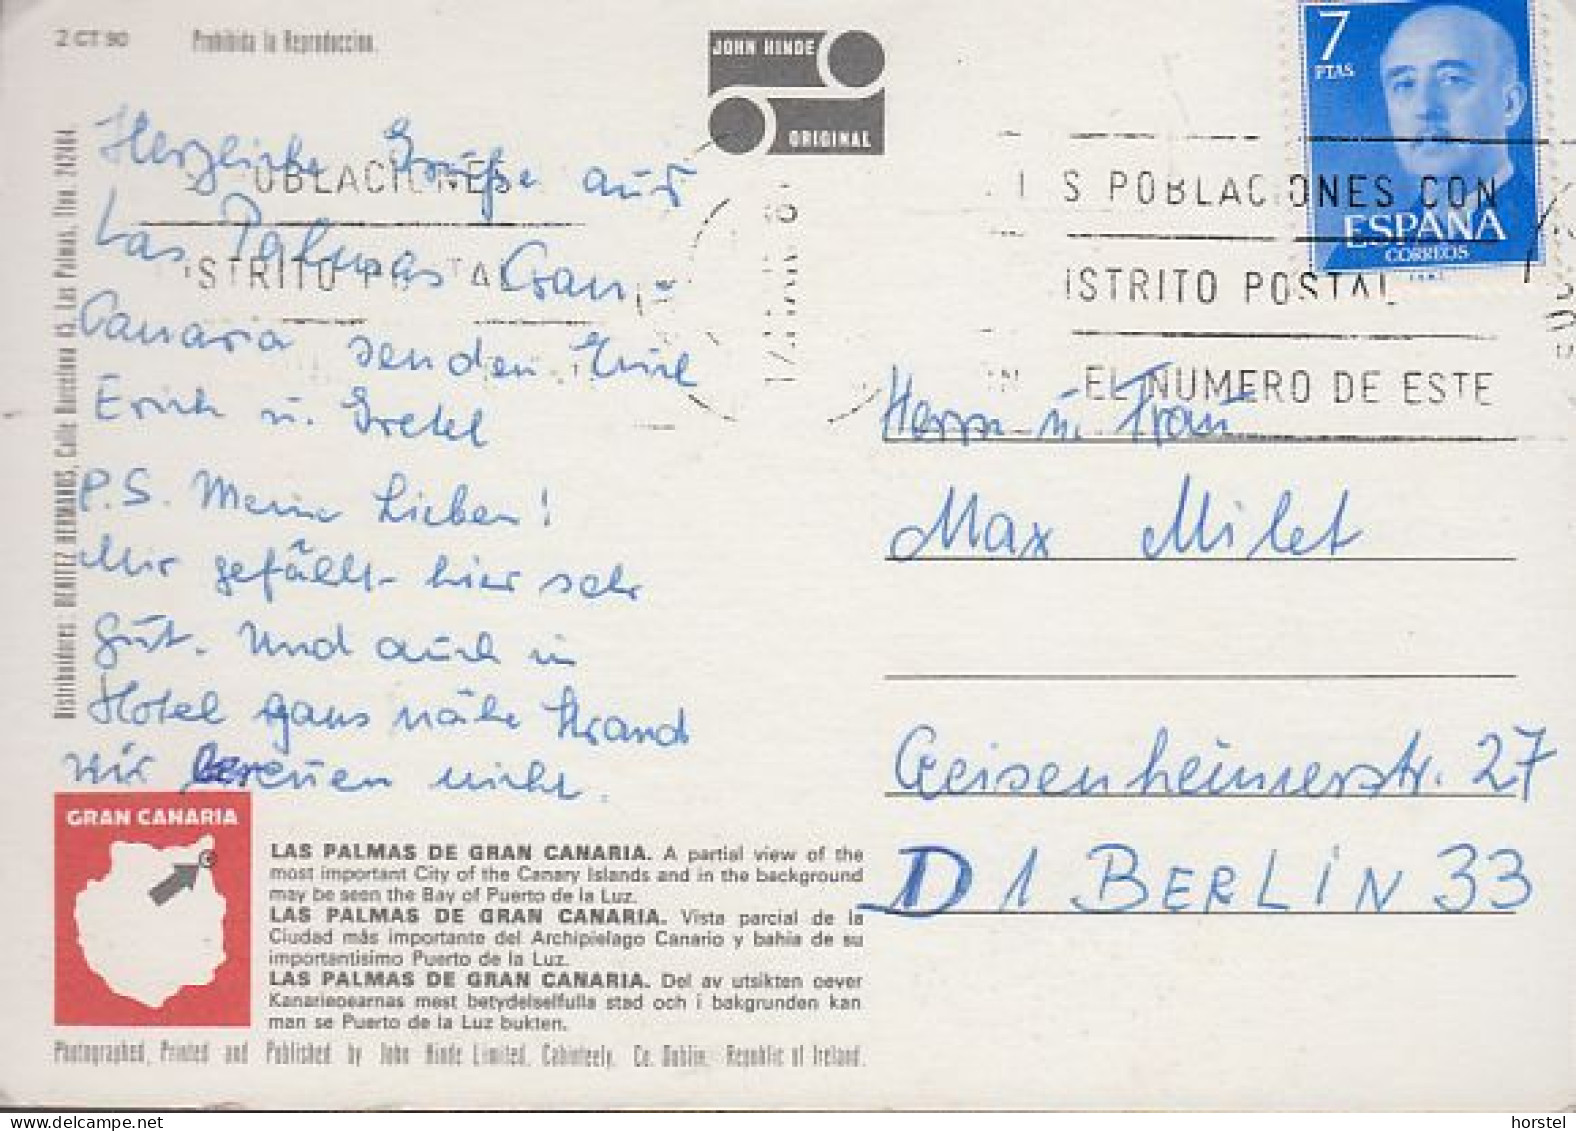 2 CT 90
Prohibida la Reproduccion.
JOHN HINDE
ORIGINAL
7
PTAS
ESPAÑA
CORREOS
OBLACIONES
STRITO
S POBLACIONES CON
ISTRITO POSTAL
EL NUMERO DE ESTE
Distribuidores: BENITEZ HERMANOS, Calle Barcelona 43, Las Palmas,
Herzliche Grüße aus
Las Palmas Gran-
Canaria senden Eure
Erich u. Gretel
P.S. Meine Lieben!
Mir gefällt hier sehr
gut. Und auch in
Hotel gans nähe Strand
wir bereuen nicht.
Herrn u. Frau
Max Milet
Geisenheimerstr. 27
D 1 BERLIN 33
GRAN CANARIA
LAS PALMAS DE GRAN CANARIA. A partial view of the
most important City of the Canary Islands and in the background
may be seen the Bay of Puerto de la Luz.
LAS PALMAS DE GRAN CANARIA. Vista parcial de la
Ciudad más importante del Archipielago Canario y bahia de su
importantisimo Puerto de la Luz.
LAS PALMAS DE GRAN CANARIA. Del av utsikten oever
Kanarieoearnas mest betydelselfulla stad och i bakgrunden kan
man se Puerto de la Luz bukten.
Photographed, Printed and Published by John Hinde Limited, Cabinteely, Co. Dublin, Republic of Ireland.
horstel auf Delcampe.net